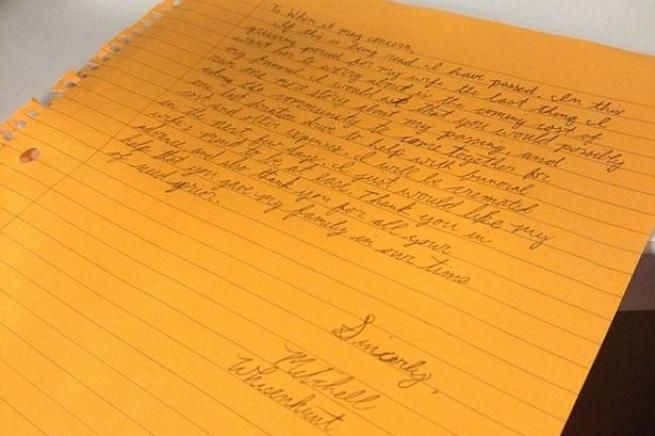 To Whom it may concern,
If this is being read, I have passed. In this
grieving period for my wife, the last thing I
want her to worry about is the coming cost of
my funeral. I would ask that you would possibly
run one more story about my passing and
asking the community to come together for
one last donation drive to help with funeral
cost and other expenses. I will be cremated
in the next few days. I just would like my
wife's mind to be at ease. Thank you in
advance and also thank you for all your
help that you gave my family in our time
of need prior.
Sincerly,
Mitchell
Whisenhunt